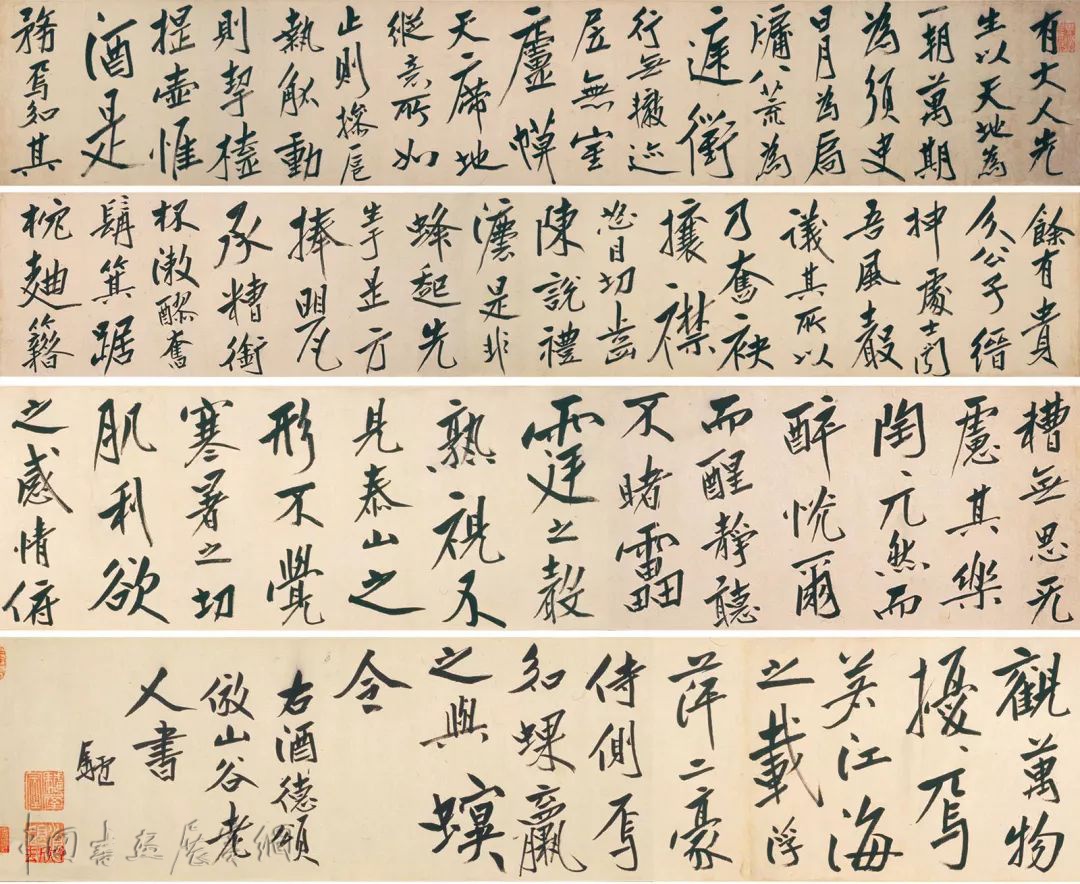 有大人先
生以天地為
一朝萬期
為須臾
日月為扃
牖八荒為
庭衢
行無轍迹
居無室
廬幙
天席地
縱意所如
止則操巵
執觚動
則挈榼
提壺惟
酒是
務焉知其
餘有貴
介公子縉
紳處士聞
吾風聲
議其所以
乃奮袂
攘襟
怒目切齒
陳說禮
灋是非
蜂起先
生于是方
捧甖
承糟銜
杯漱醪奮
髯箕踞
枕麯籍
糟無思无
慮其樂
陶〻兀然而
醉怳爾
而醒靜聽
不睹靁
霆之聲
熟視不
見泰山之
形不覺
寒暑之切
肌利欲
之感情俯
觀萬物
擾〻焉
若江海
之載浮
萍二豪
侍側焉
知蜾蠃
之與螟
令
右酒德頌
倣山谷老
人書
中國書法展賽網